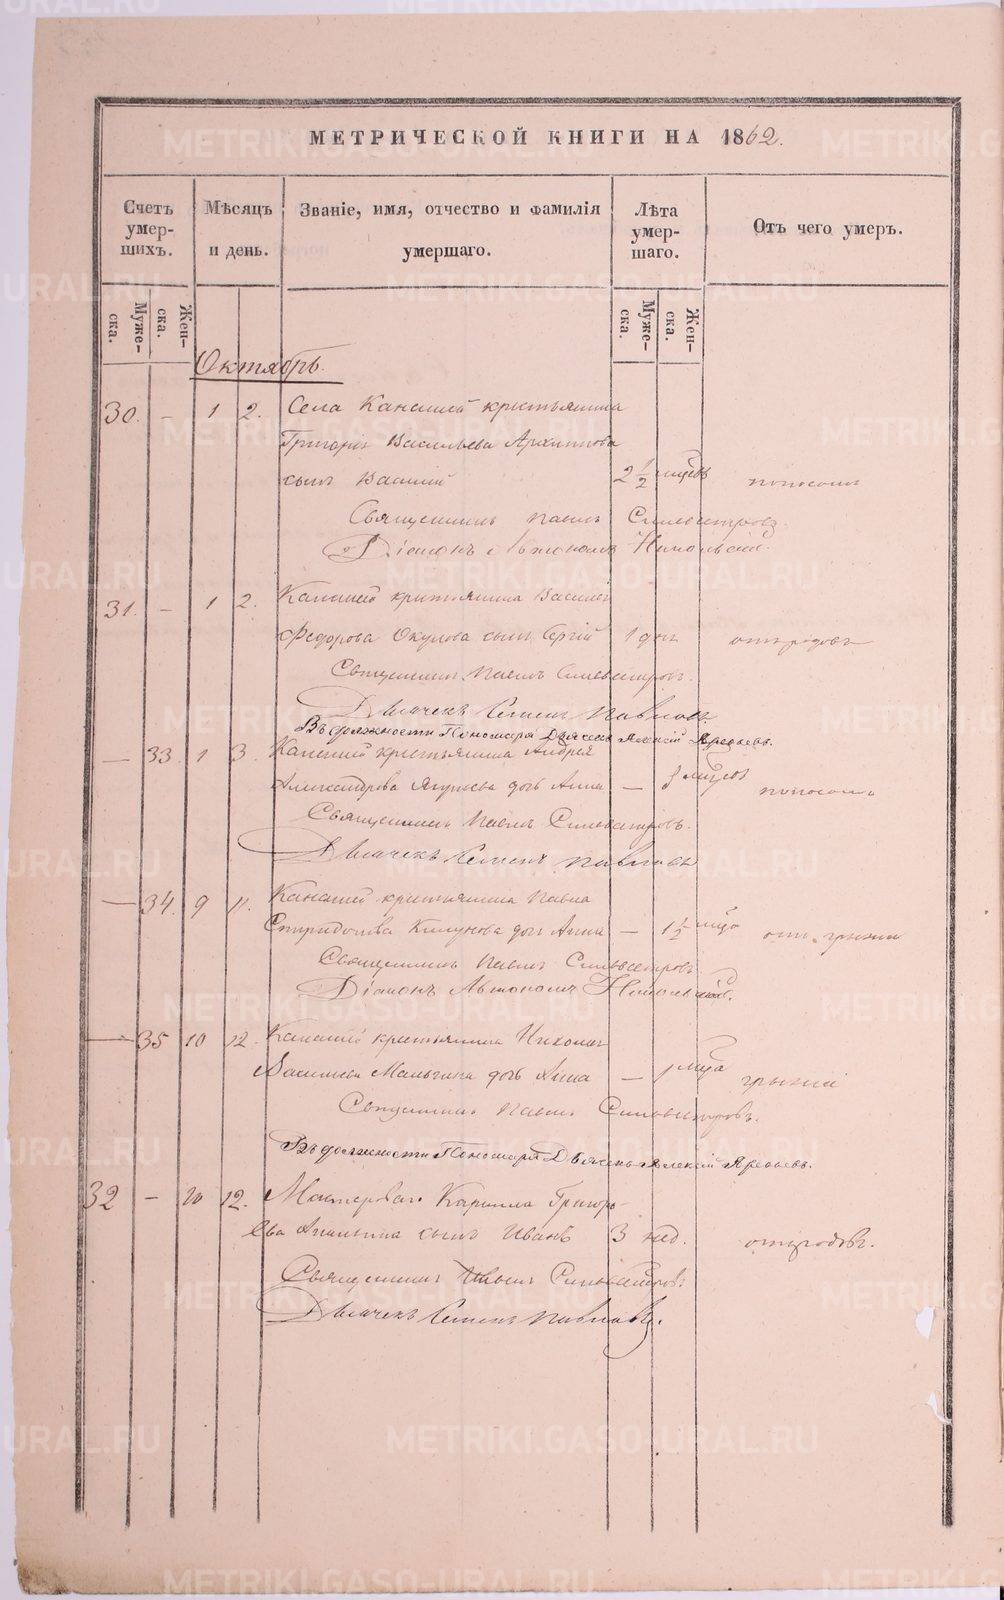 МЕТРИЧЕСКОЙ КНИГИ НА 1862.
Счетъ умер-шихъ.
Мѣсяцъ и день.
Званіе, имя, отчество и фамилія умершаго.
Лѣта умер-шаго.
Отъ чего умеръ.
Муже-ска.
Жен-ска.
Муже-ска.
Жен-ска.
Октябрь.
30. – 1 2. Села Канашей крестьянина
Григорія Васильева Архипова
сынъ Василій 2 1/2 поносомъ
Священникъ Павелъ Сильвестровъ.
Діаконъ Автономъ Никольскій.
31. – 1 2. Канашей крестьянина Василія
Федорова Окулова сынъ Сергій 1 дня отъ родовъ
Священникъ Павелъ Сильвестровъ.
Дьячекъ Семенъ Павловъ.
Въ должности Пономаря Дьячекъ Алексій
— 33. 1 3. Канашей крестьянина Андрея
Александрова дочь Анна — поносомъ
Священникъ Павелъ Сильвестровъ.
Дьячекъ Семенъ Павловъ
— 34. 9 11. Канашей крестьянина Павла
Спиридонова дочь Анна — 1 1/2 отъ грыжи
Священникъ Павелъ Сильвестровъ
Діаконъ Автономъ Никольскій.
— 35 10 12. Канашей крестьянина
Васильева Мальгина дочь Анна — 1 грыжи
Священникъ Павелъ Сильвестровъ.
Въ должности Пономаря Дьячекъ Алексій
32 – 10 12. Мастероваго Карпила Григорь-
ева Ананьина сынъ Иванъ 3 нед. отъ родовъ.
Священникъ Павелъ Сильвестровъ
Дьячекъ Семенъ Павловъ.
METRIKI.GASO-URAL.RU